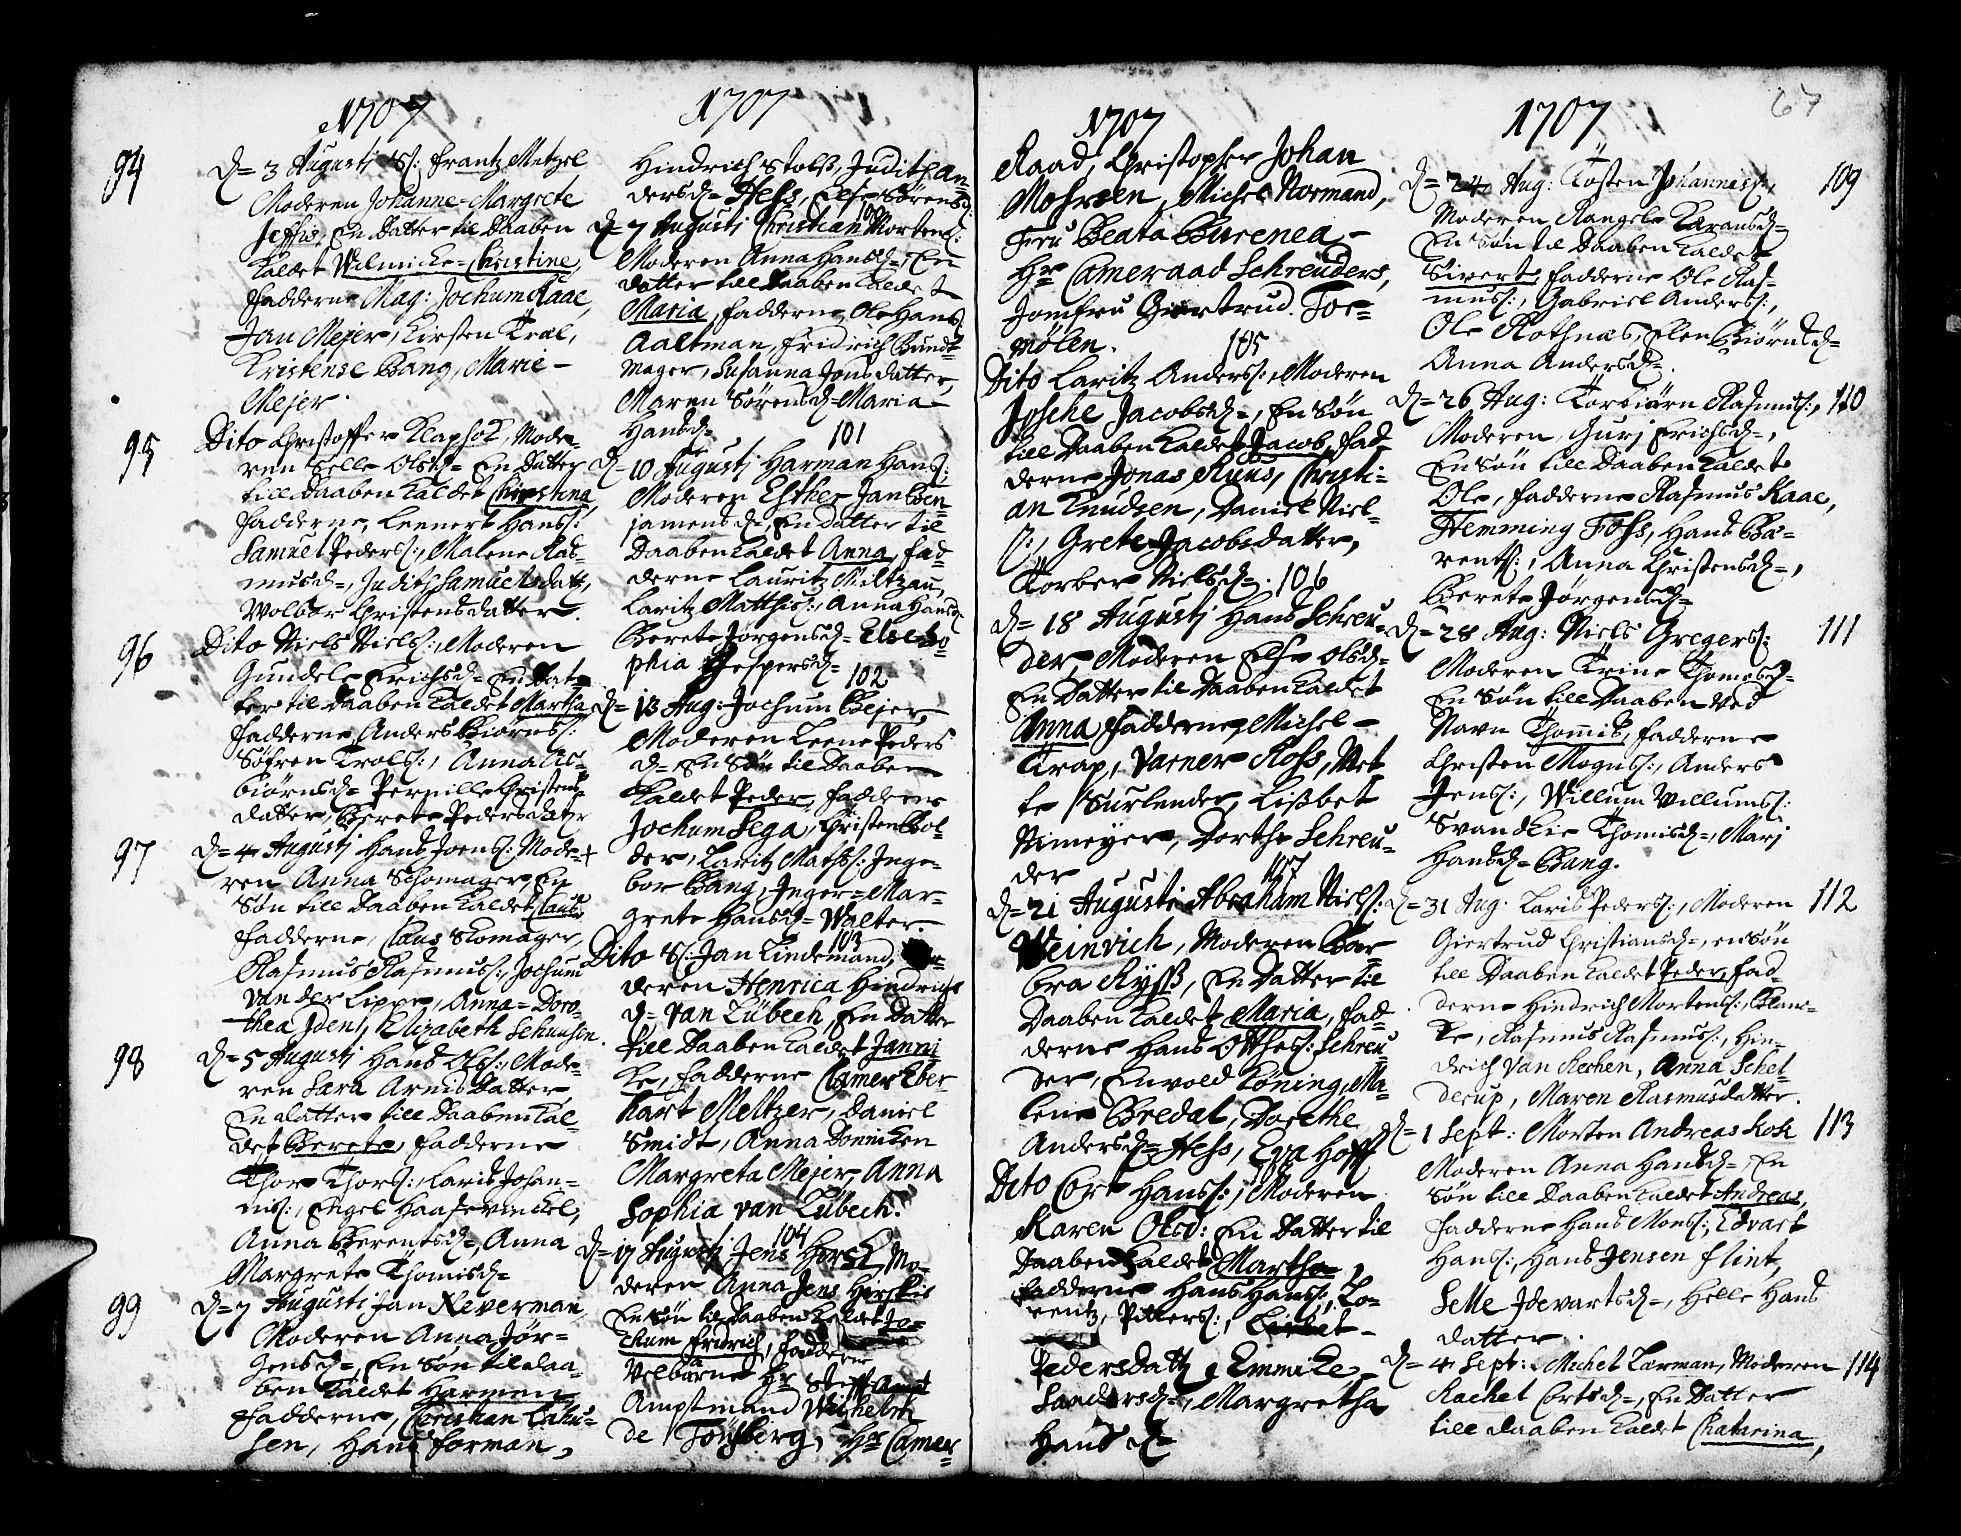 1707
94
D= 3 Augustj S: Frantz Metzel
Moderen Johanne-Margrete
Jeffis, En Datter til Daaben
Kaldet Wilmicke-Christine,
Fadderne Mag: Jochum Kaae,
Jan Mejer, Kirsten Krol,
Kristense Bang, Marie-
Mejer.
95
Dito Christoffer Klapsök, Mode-
ren Selle Olsd= En Datter
till Daaben Kaldet Christina,
Fadderne, Leenert Hanss:
Samuel Peders:, Malene Ras-
musd=, Judith Samuelsdatt,
Wolbor Christensdatter.
96
Dito Niels Niels:, Moderen
Gundele Erichsd= En Dat-
ter til Daaben Kaldet Martha,
Fadderne, Anders Biörns:
Söfren Trols:, Anna As-
biörnsd= Pernille Christens
datter, Berete Pedersdatter
97
D= 4 Augustj Hans Joens: Mode-
ren Anna Schomager, En
Sön till Daaben Kaldet Claus,
Fadderne, Claus Skomager,
Rasmus Rasmuss:, Jochum
van der Lippe, Anna-Doro-
thea Ident, Elizabeth Schuusen.
98
D= 5 Augustj Hans Ols:, Mode-
ren Sara Arnis Datter
En datter till Daaben Kal-
det Berete, Fadderne
Thor Thors:, Laris Johan-
nis:, Engel Haasewinckel,
Anna Berentsd=, Anna
Margrete Thomisd=
99
D= 7 Augusti Jan Neverman,
Moderen Anna Jör-
gensd=, En Sön til daa-
ben Kaldet Harmen,
Fadderne, Christian Lahu-
sen, Hans Forman,
1707
Hindrich Stolss, Judith An-
dersd= Hess, Else Sörensd:
100
D= 7 Augusti Christian Mortens:
Moderen Anna Hansd=, En
datter till Daaben Kaldet
Maria, Fadderne, Ole Hans:
Aaltman, Fridrich Bundt-
mager, Susanna Jons datter,
Maren Sörensd= Maria
Hansd=
101
D= 10 Augustj Harman Hans:,
Moderen Esther Jan Ben-
jamensd=, En datter til
Daaben Kaldet Anna, Fad-
derne Lauritz Miltzau,
Laritz Matthis:, Anna Hansd
Berete Jörgensd= Else So-
phia Jespersd=
102
D= 13 Aug: Jochum Bejer,
Moderen Leene Peders
d= En Sön til Daaben
Kaldet Peder, Fadderne
Jochum Sega, Christen Bol-
der, Laritz Mathss: Inge-
bor Bang, Inger-Mar-
grete Hansd= Walter.
103
Dito S: Jan Lindemand,
deren Henrica Hindrichs
d= van Lübech, En Datter
till Daaben Kaldet Janni-
ke, Fadderne Camer Eber-
hart Meltzer, Daniel
Smidt, Anna Donnicken
Margreta Mejer, Anna
Sophia van Lübech.
104
D= 17 Augustj Jens Hersk, Mo-
deren Anna Jens Herskis
En Sön til Daaben Kaldet Jo-
chum Fridrich, Fadderne
Velbårne Hr Stift Amt
Ampstmand Wilhelm
de Tönsberg, Hr Camer-
1707
Raad, Christopher Johan
Mohrsen, Michel Normand,
Fru Beata Burenea-
Hr Cameraad Schreuders,
Jomfru Giertrud Toe-
mölen.
105
Dito Laritz Anders:, Moderen
Josche Jacobsd=, En Sön
till Daaben Kaldet Jacob, Fad-
derne Jonas Ruus, Christi-
an Knudsen, Daniel Niel-
s:, Grete Jacobsdatter,
Korber Nielsd=.
106
D= 18 Augustj Hans Schreu-
der, Moderen Else Olsd=
En Datter til Daaben Kaldet
Anna, Fadderne, Michel-
Trap, Varner Ross, Met-
te Surlender, Lisbet
Nimeyer, Dorthe Schreu-
der
107
D= 21 Augusti Abraham Niels:
Weinrich, Moderen Bar-
bra Ryss, En Datter til
Daaben Kaldet Maria, Fad-
derne Hans Otthes: Schreu-
der, Envold Köning, Ma-
lene Bredal, Dorethe
Andersd= Hess, Eva Hoff
108
Dito Cort Hanss:, Moderen
Karen Olsd: En Datter til
Daaben Kaldet Martha,
Fadderne Hans Hans:, Lo-
rentz, Pitters:, Lisbet-
Pedersdatt, Emmicke-
Saadersd=, Margretha
Hans d=
1707
67
109
D= 24 Aug: Tosten Johannes:,
Moderen Rangele Haransd=
En Sön til Daaben Kaldet
Sivert, Fadderne Ole Ras-
mus:, Gabriel Anders:,
Ole Rothnas, Elen Biörnsd=
Anna Andersd=.
110
D= 26 Aug: Torbiörn Rasmus:,
Moderen, Gurj Erichsd=,
En Sön till Daaben Kaldet
Ole, Fadderne Rasmus Kaae,
Hemming Foss, Hans Ba-
rents:, Anna Christensd=,
Berete Jörgensd=
111
D= 28 Aug: Niels Gregers:
Moderen Trine Thomesd=
En Sön till Daaben Ved
Navn Thommis, Fadderne
Christen Mognss:, Anders
Jens:, Willum Willums:
Svandtie Thomisd=, Marj
Hansd= Bang.
112
D= 31 Aug: Laris Peders:, Moderen
Giertrud Christiansd=, en Sön
till Daaben Kaldet Peder, Fad-
derne Hindrich Mortens:, Blanc-
ke, Rasmus Rasmus:, Hin-
drich Van Rechen, Anna Schel-
derup, Maren Rasmusdatter.
113
D= 1 Sept: Morten Andreas Kock
Moderen Anna Hansd=, En
Sön till Daaben Kaldet Andreas,
Fadderne Hans Mons:, Edvart
Hans:, Hans Jensen Flint,
Selle Idevartsd=, Helle Hans
datter.
114
D= 4 Sept: Michel Larman, Moderen
Rachel Cortsd=, En Datter
till Daaben Kaldet Chatarina,